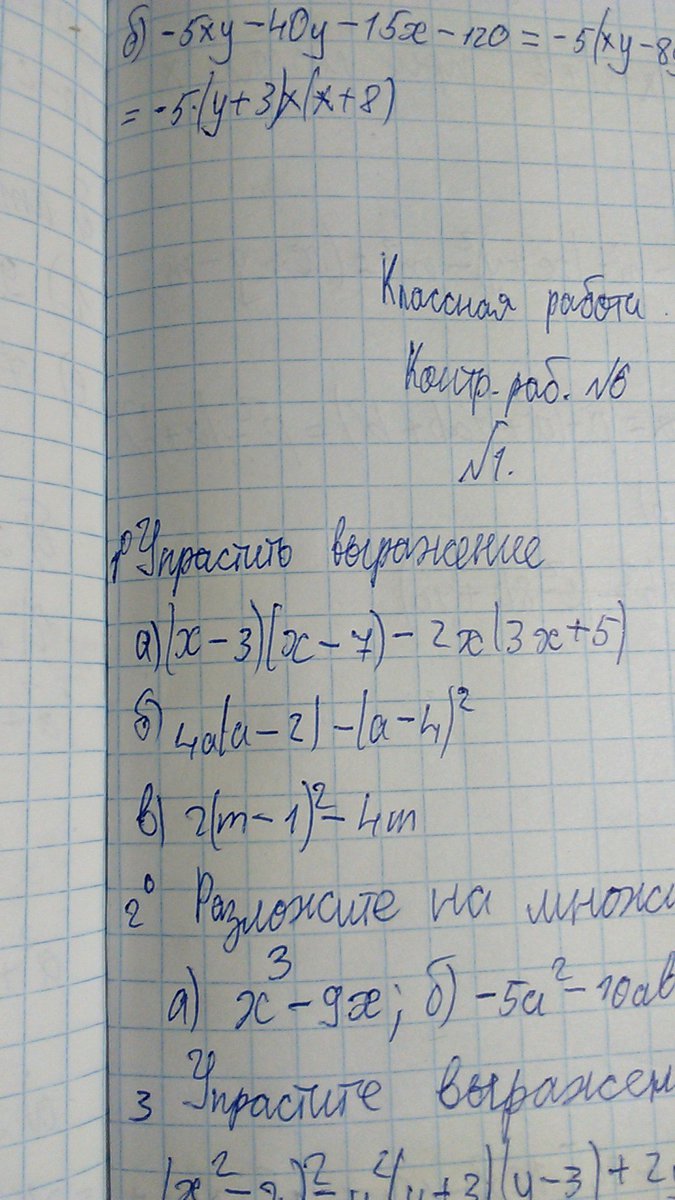 б) -5xy - 40y - 15x - 120 = -5(xy - 8y
= -5·(y+3)(x+8)
Классная работа.
Контр. раб. №6
№1.
1⁰ Упрастить выражение
а) (x-3)(x-7) - 2x(3x+5)
б) 4a(a-2) - (a-4)²
в) 2(m-1)² - 4m
2⁰ Разложите на множи
а) x³ - 9x; б) -5a² - 10ab
3 Упрастите выражен
(y+3)(y-3) + 2y